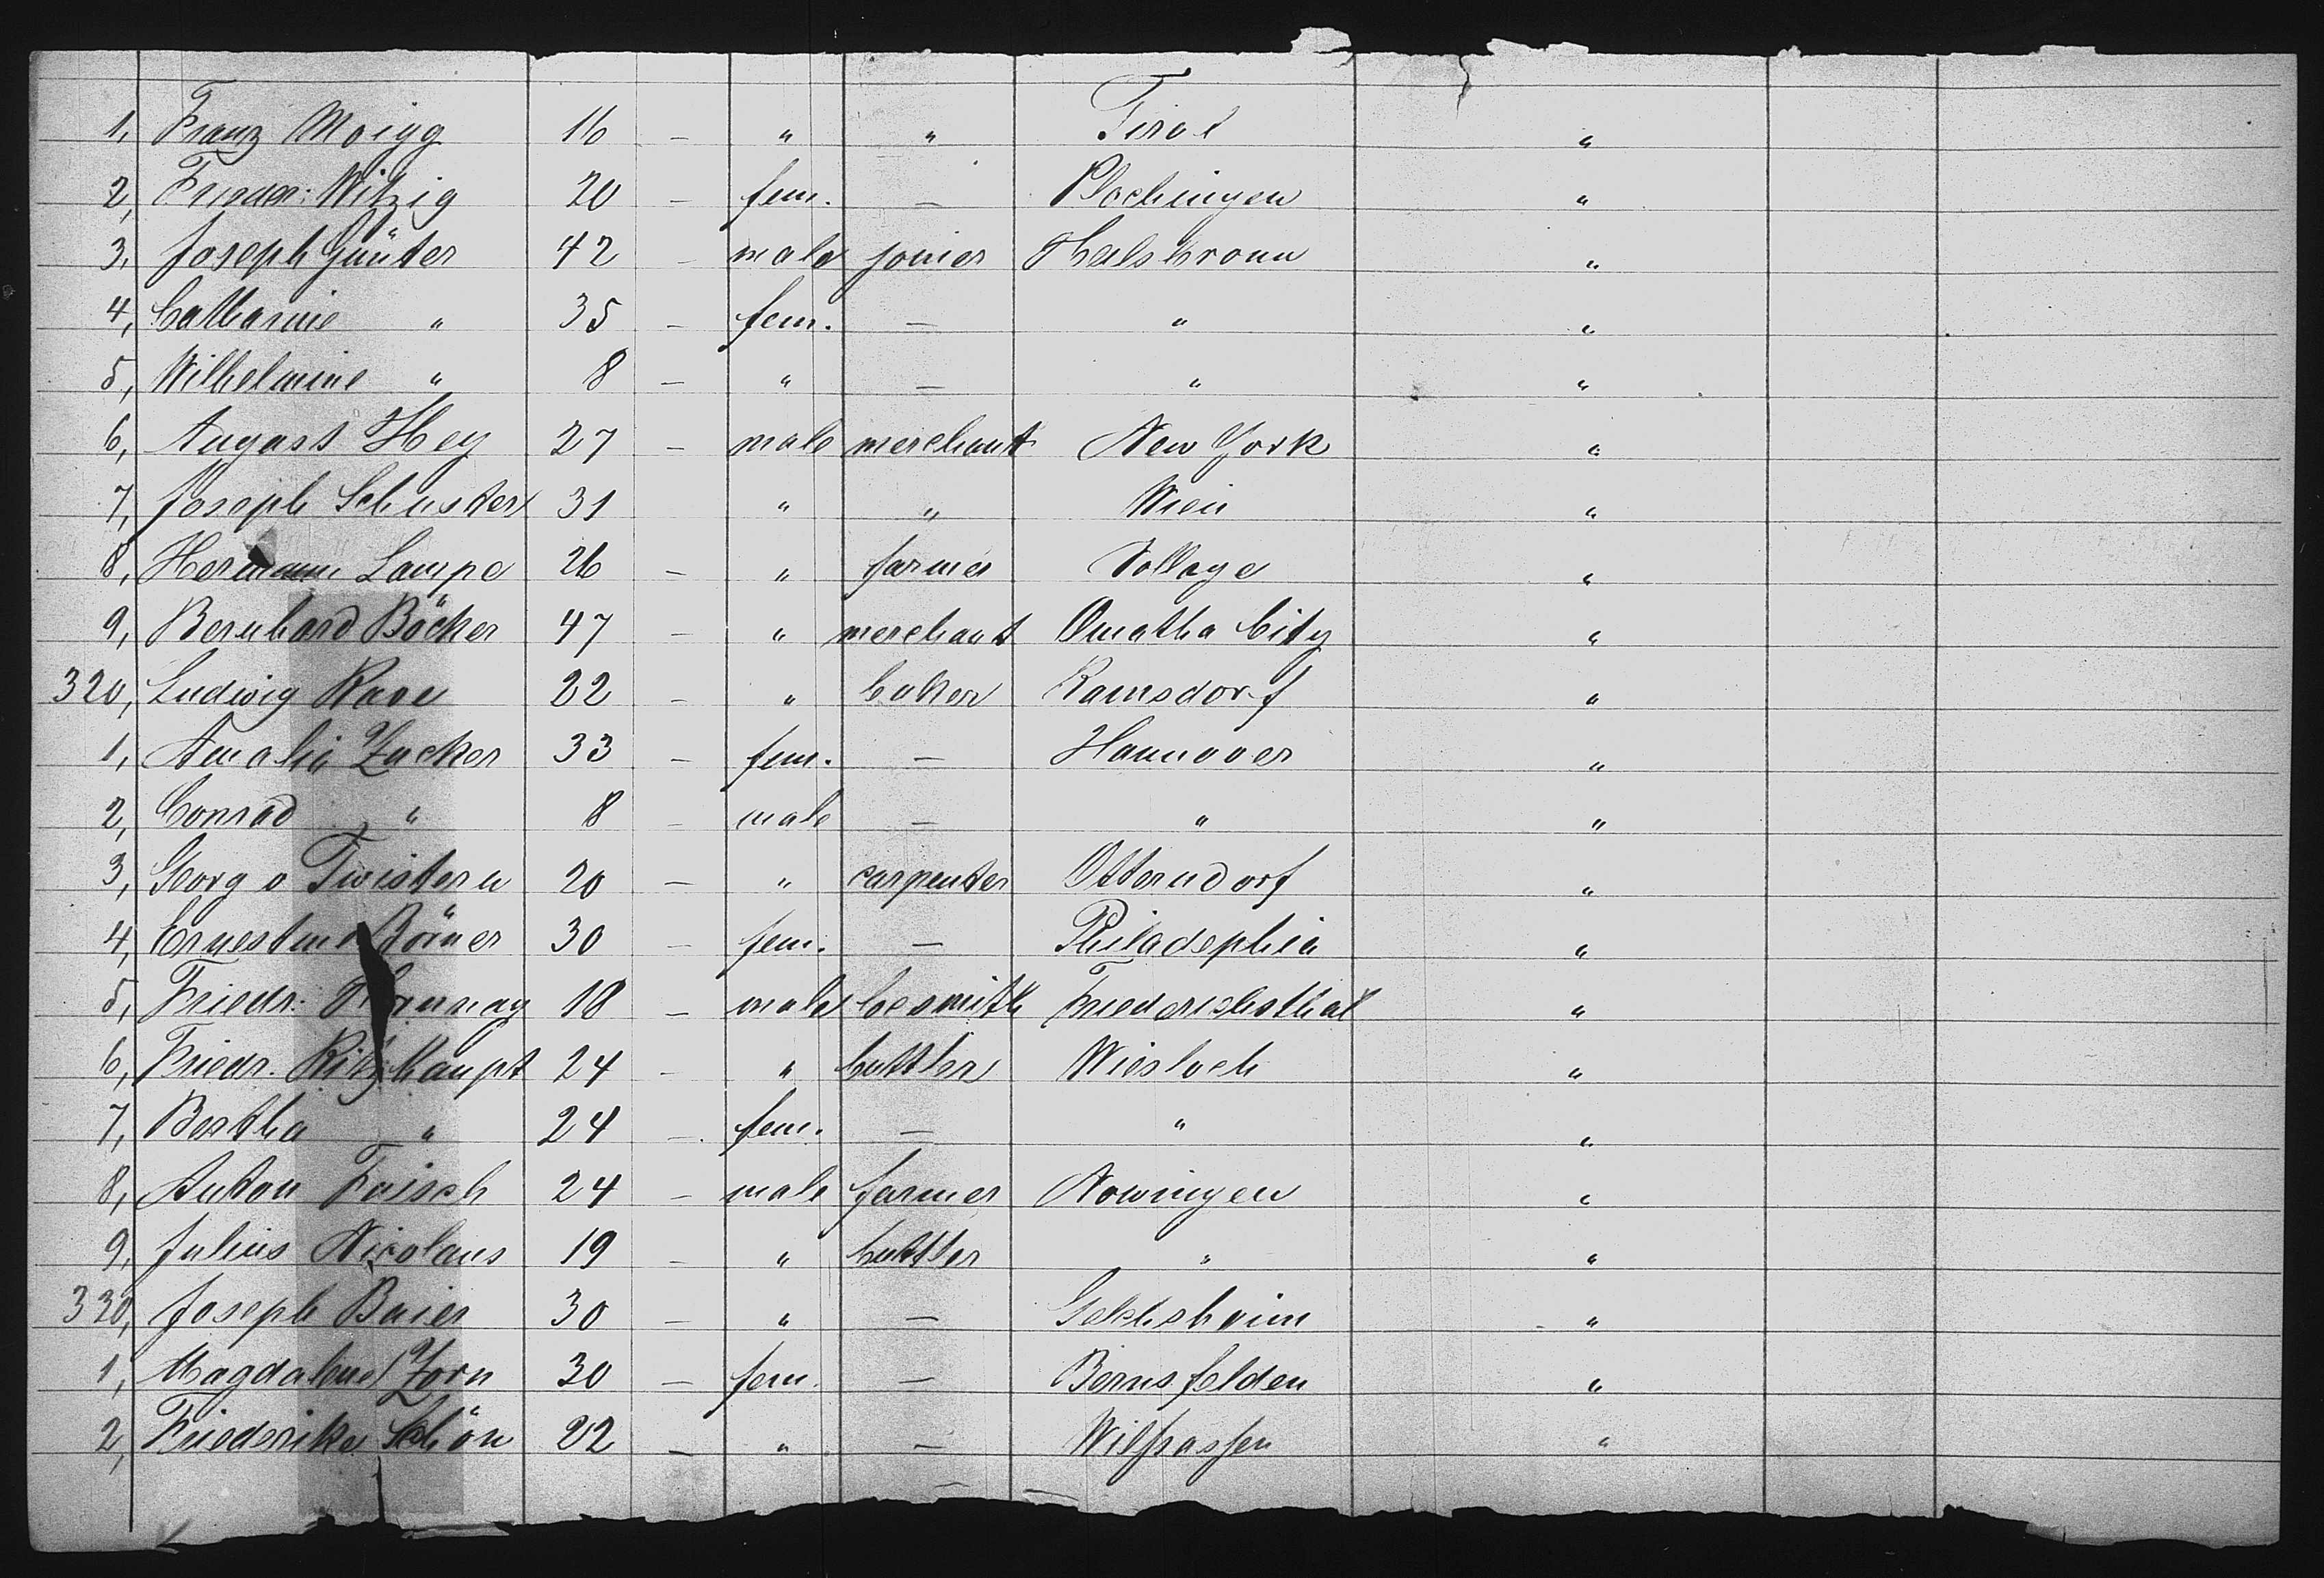 1, Franz Moigg 16 — " " Tirol "
2, Friedr: Witzig 20 — fem. — Plochingen "
3, Joseph Günter 42 — male joiner Heilsbronn "
4, Catharine " 35 — fem. — " "
5, Wilhelmine " 8 — " — " "
6, August Hey 27 — male merchant New York "
7, Joseph Schuster 31 " " Wien "
8, Hermann Lampe 26 — " farmer Vollage "
9, Bernhard Böcker 47 — " merchant Omatha City "
320, Ludwig Rave 22 — " baker Ramsdorf "
1, Amalia Zucker 33 — fem. — Hannover "
2, Conrad " 8 — male — " "
3, Georg v Twistern 20 — " carpenter Otterndorf "
4, Ernestine 30 — fem. — Philadephia "
5, Friedr: 18 — male Friederichsthal "
6, Friedr. Ritzhaupt 24 — " buttler Wiesloch "
7, Bertha " 24 — fem. — " "
8, Anton Frisch 24 — male farmer "
9, Julius Nicolaus 19 — " buttler " "
330, Joseph Baier 30 — " — "
1, Magdalene Zorn 30 — fem. — Bernsfelden "
2, Friederike Schön 22 — " — "